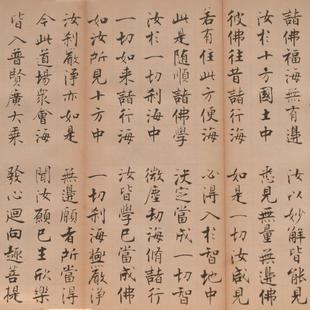 諸佛福海無有邊　汝以妙解皆能見
汝於十方國土中　悉見無量無邊佛
彼佛往昔諸行海　如是一切汝咸見
若有住此方便海　必得入於智地中
此是隨順諸佛學　決定當成一切智
汝於一切剎海中　微塵劫海修諸行
一切如來諸行海　汝皆學已當成佛
如汝所見十方中　一切剎海極嚴淨
汝剎嚴淨亦如是　無邊願者所當得
今此道場眾會海　聞汝願已生欣樂
皆入普賢廣大乘　發心迴向趣菩提